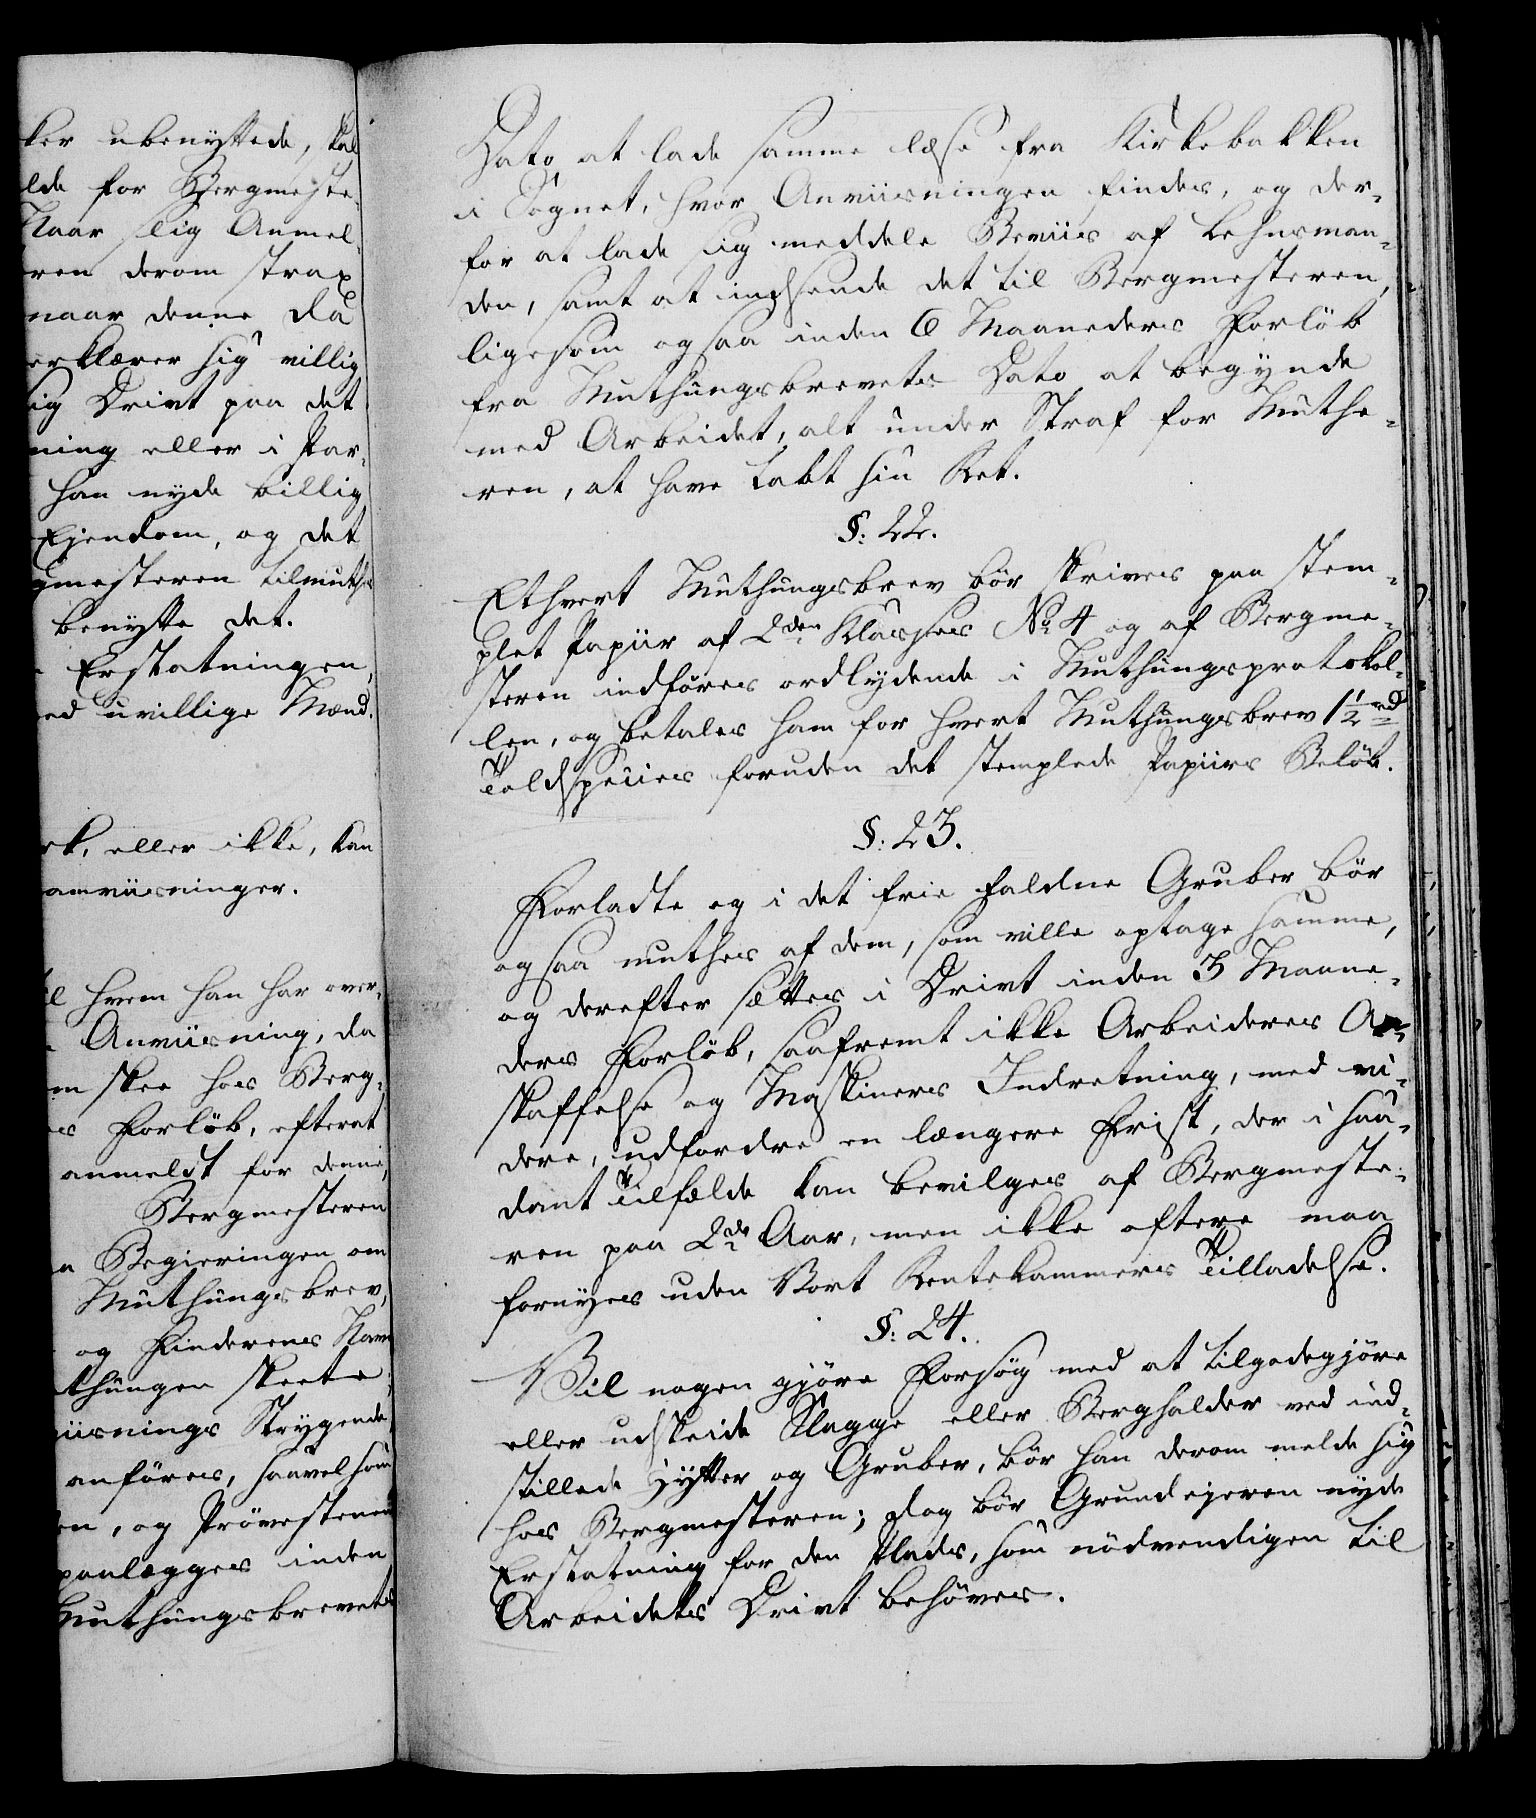 ker ubenyttede, skal
lde for Bergmeste
Naar slig Anmel-
ren derom strax
naar denne da
erklærer sig villig
ig Drivt paa det
ning eller i Par-
han nyde billig
Ejendom, og det
gmesteren tilmuthe
benytte det.
Erstatningen,
ed uvillige Mænd.
rk, eller ikke, kan
anviisninger.
il hvem han har over-
Anviisning, da
m skee hos Berg-
s Forløb, efterat
anmeldt for denne,
Bergmesteren
Begieringen om
Muthungsbrev,
og Finderens Navn
thungen skeete,
iisnings Strygende
anføres, saavelsom
en, og Prøvestenen
paalægges inden
Muthungsbrevets
Dato at lade samme læse fra Kirkebakken
i Sognet, hvor Anviisningen findes, og der-
for at lade sig meddele Beviis af Lehnsman-
den, samt at indsende det til Bergmesteren,
ligesom ogsaa inden 6 Maaneders Forløb
fra Muthungsbrevets Dato at begynde
med Arbeidet, alt under Straf for Muthe-
ren, at have tabt sin Ret.
§: 22.
Ethvert Muthungsbrev bør skrives paa stem-
plet Papiir af 2den Klasses No 4 og af Bergme-
steren indføres ordlydende i Muthungsprotokol-
len, og betales ham for hvert Muthungsbrev 1½ rd
Toldspecies foruden det stemplede Papiirs Beløb.
§: 23.
Forladte og i det frie faldne Gruber bør
ogsaa muthes af dem, som ville optage samme,
og derefter sættes i Drivt inden 3 Maane-
ders Forløb, saafremt ikke Arbeideres An-
skaffelse og Maskiners Indretning, med vi-
dere, udfordre en længere Frist, der i saa-
dant Tilfælde kan bevilges af Bergmeste-
ren paa 2de Aar, men ikke oftere maa
fornyes uden Vort Rentekammers Tilladelse.
§: 24.
Vil nogen gjøre Forsøg med at tilgodegjøre
eller udskeide Slagge eller Berghalder ved ind-
stillede Hytter og Gruber, bør han derom melde sig
hos Bergmesteren; dog bør Grundejeren nyde
Erstatning for den Plads, som nødvendigen til
Arbeidets Drivt behøves.